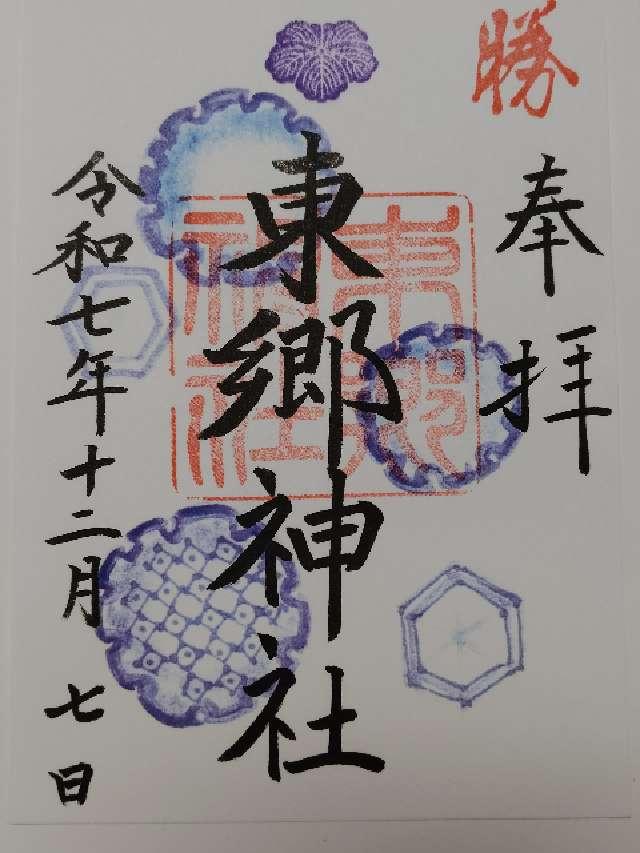 勝
奉拝
東郷神社
東郷神社
令和七年十二月七日